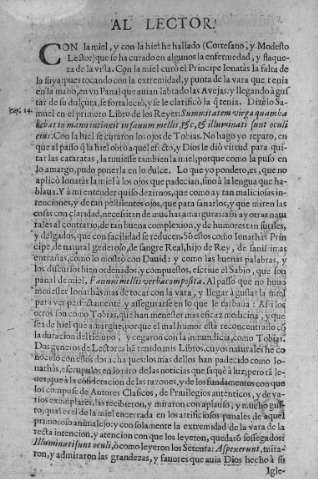 AL LECTOR.
CON la miel, y con la hiel he hallado (Cortesano, y Modesto
Lector) que se ha curado en algunos la enfermedad, y flaque-
za de la vista. Con la miel curò el Principe Ionatàs la falta de
la suya pues tocando con la extremidad, y punta de la vara que tenia
en la mano, en vn Panal que auian labrado las Avejas: y llegando à gus-
tar de su dulçura, se fortaleciò, y se le clarificò la
muel en el primero Libro de los Reyes:
Con la hiel se
que al passo que la hiel obrò que Dios le diò virtud para qui-
tar las cataratas, la tuuiesse tambien la miel, porque como la puso en
lo amargo, pudo ponerla en lo dulce. Lo que yo pondero, es, que no
aplicò Ionatàs la miel à los ojos que padecian, sino à la lengua que ha-
blaua. Y à mi entender quiso dezirnos, que como ay tan maliciosas in-
tenciones, y de tan pessimos ojos, que para sanarlos, y que miren las
cosas con claridad, necessitan de muchas amarguras; assi ay otras natu-
rales al contrario, de tan buena complexion, y de humores tan sutiles,
y delgados, que con facilidad se reducen. Son estos como Ionathàs Prin-
cipe, de natural generoso, de sangre Real, hijo de Rey, de
entrañas, como lo mostrò con Dauid: y como las buenas palabras, y
los discursos bien ordenados, y compuestos, escriue el Sabio, que son
panal de miel, Fauus mellis verba composita. Al passo que no huuo
menester Ionathàs mas de tocar con la vara, y llegar à gustar la miel
para ver perfectamente, y assegurarse en lo que le faltaua: Assi los
otros son como Tobias, que han menester mas eficaz medicina, y que
sea de hiel que amargue, porque el mal humor està reconcentrado con
la duracion del tiempo, y cegaron con la inmundicia, como Tobias.
Dos generos de Lectores hà tenido mis Libros, cuyos naturales he co-
nocido con estos dos: à los vnos
nathàs, escrupulos en lo raro de las noticias que saquè à luz, però
ues, que à la consideracion de las razones, y de los fundamentos con que
los compuse de Autores Clasicos, de Priuilegios autenticos, y de va-
rios exemplares, las recibieron, y miraron con aplauso, y mucho gus-
to, qual es el de la miel encerrada en los artificiosos panales de aquel
primoroso animalejo: y con sola mente la extremidad de la vara de la
recta intencion, y atencion con que los leyeron, quedarõ sossegados:
Illuminati sunt oculi, ò como leyeron los Setenta: Aspexerunt, mira-
ron, y admiraron las grandezas, y fauores que auia Dios hecho à su
Igle-